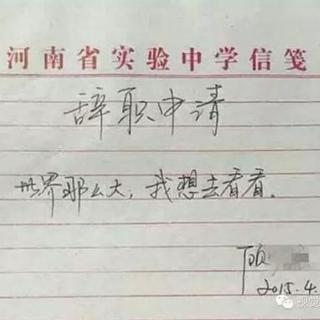 河南省实验中学信笺
辞职申请
世界那么大，我想去看看。
顾
2015.4.